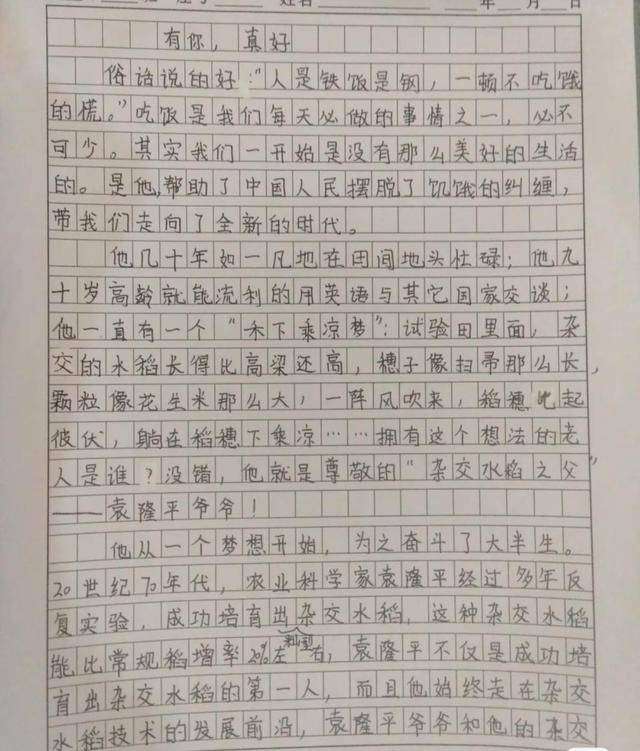 姓名 年 月 日
有你，真好
俗话说的好："人是铁饭是钢，一顿不吃饿
的慌。"吃饭是我们每天必做的事情之一，必不
可少。其实我们一开始是没有那么美好的生活
的。是他，帮助了中国人民摆脱了饥饿的纠缠，
带我们走向了全新的时代。
他几十年如一凡地在田间地头忙碌；他九
十岁高龄就能流利的用英语与其它国家交谈；
他一直有一个"禾下乘凉梦"：试验田里面，杂
交的水稻长得比高梁还高，穗子像扫帚那么长，
颗粒像花生米那么大，一阵风吹来，稻穗此起
彼伏，躺在稻穗下乘凉……拥有这个想法的老
人是谁？没错，他就是尊敬的"杂交水稻之父"
——袁隆平爷爷！
他从一个梦想开始，为之奋斗了大半生。
20世纪70年代，农业科学家袁隆平经过多年反
复实验，成功培育出籼型杂交水稻，这种杂交水稻
能比常规稻增率20%左右，袁隆平不仅是成功培
育出杂交水稻的第一人，而且他始终走在杂交
水稻技术的发展前沿，袁隆平爷爷和他的杂交